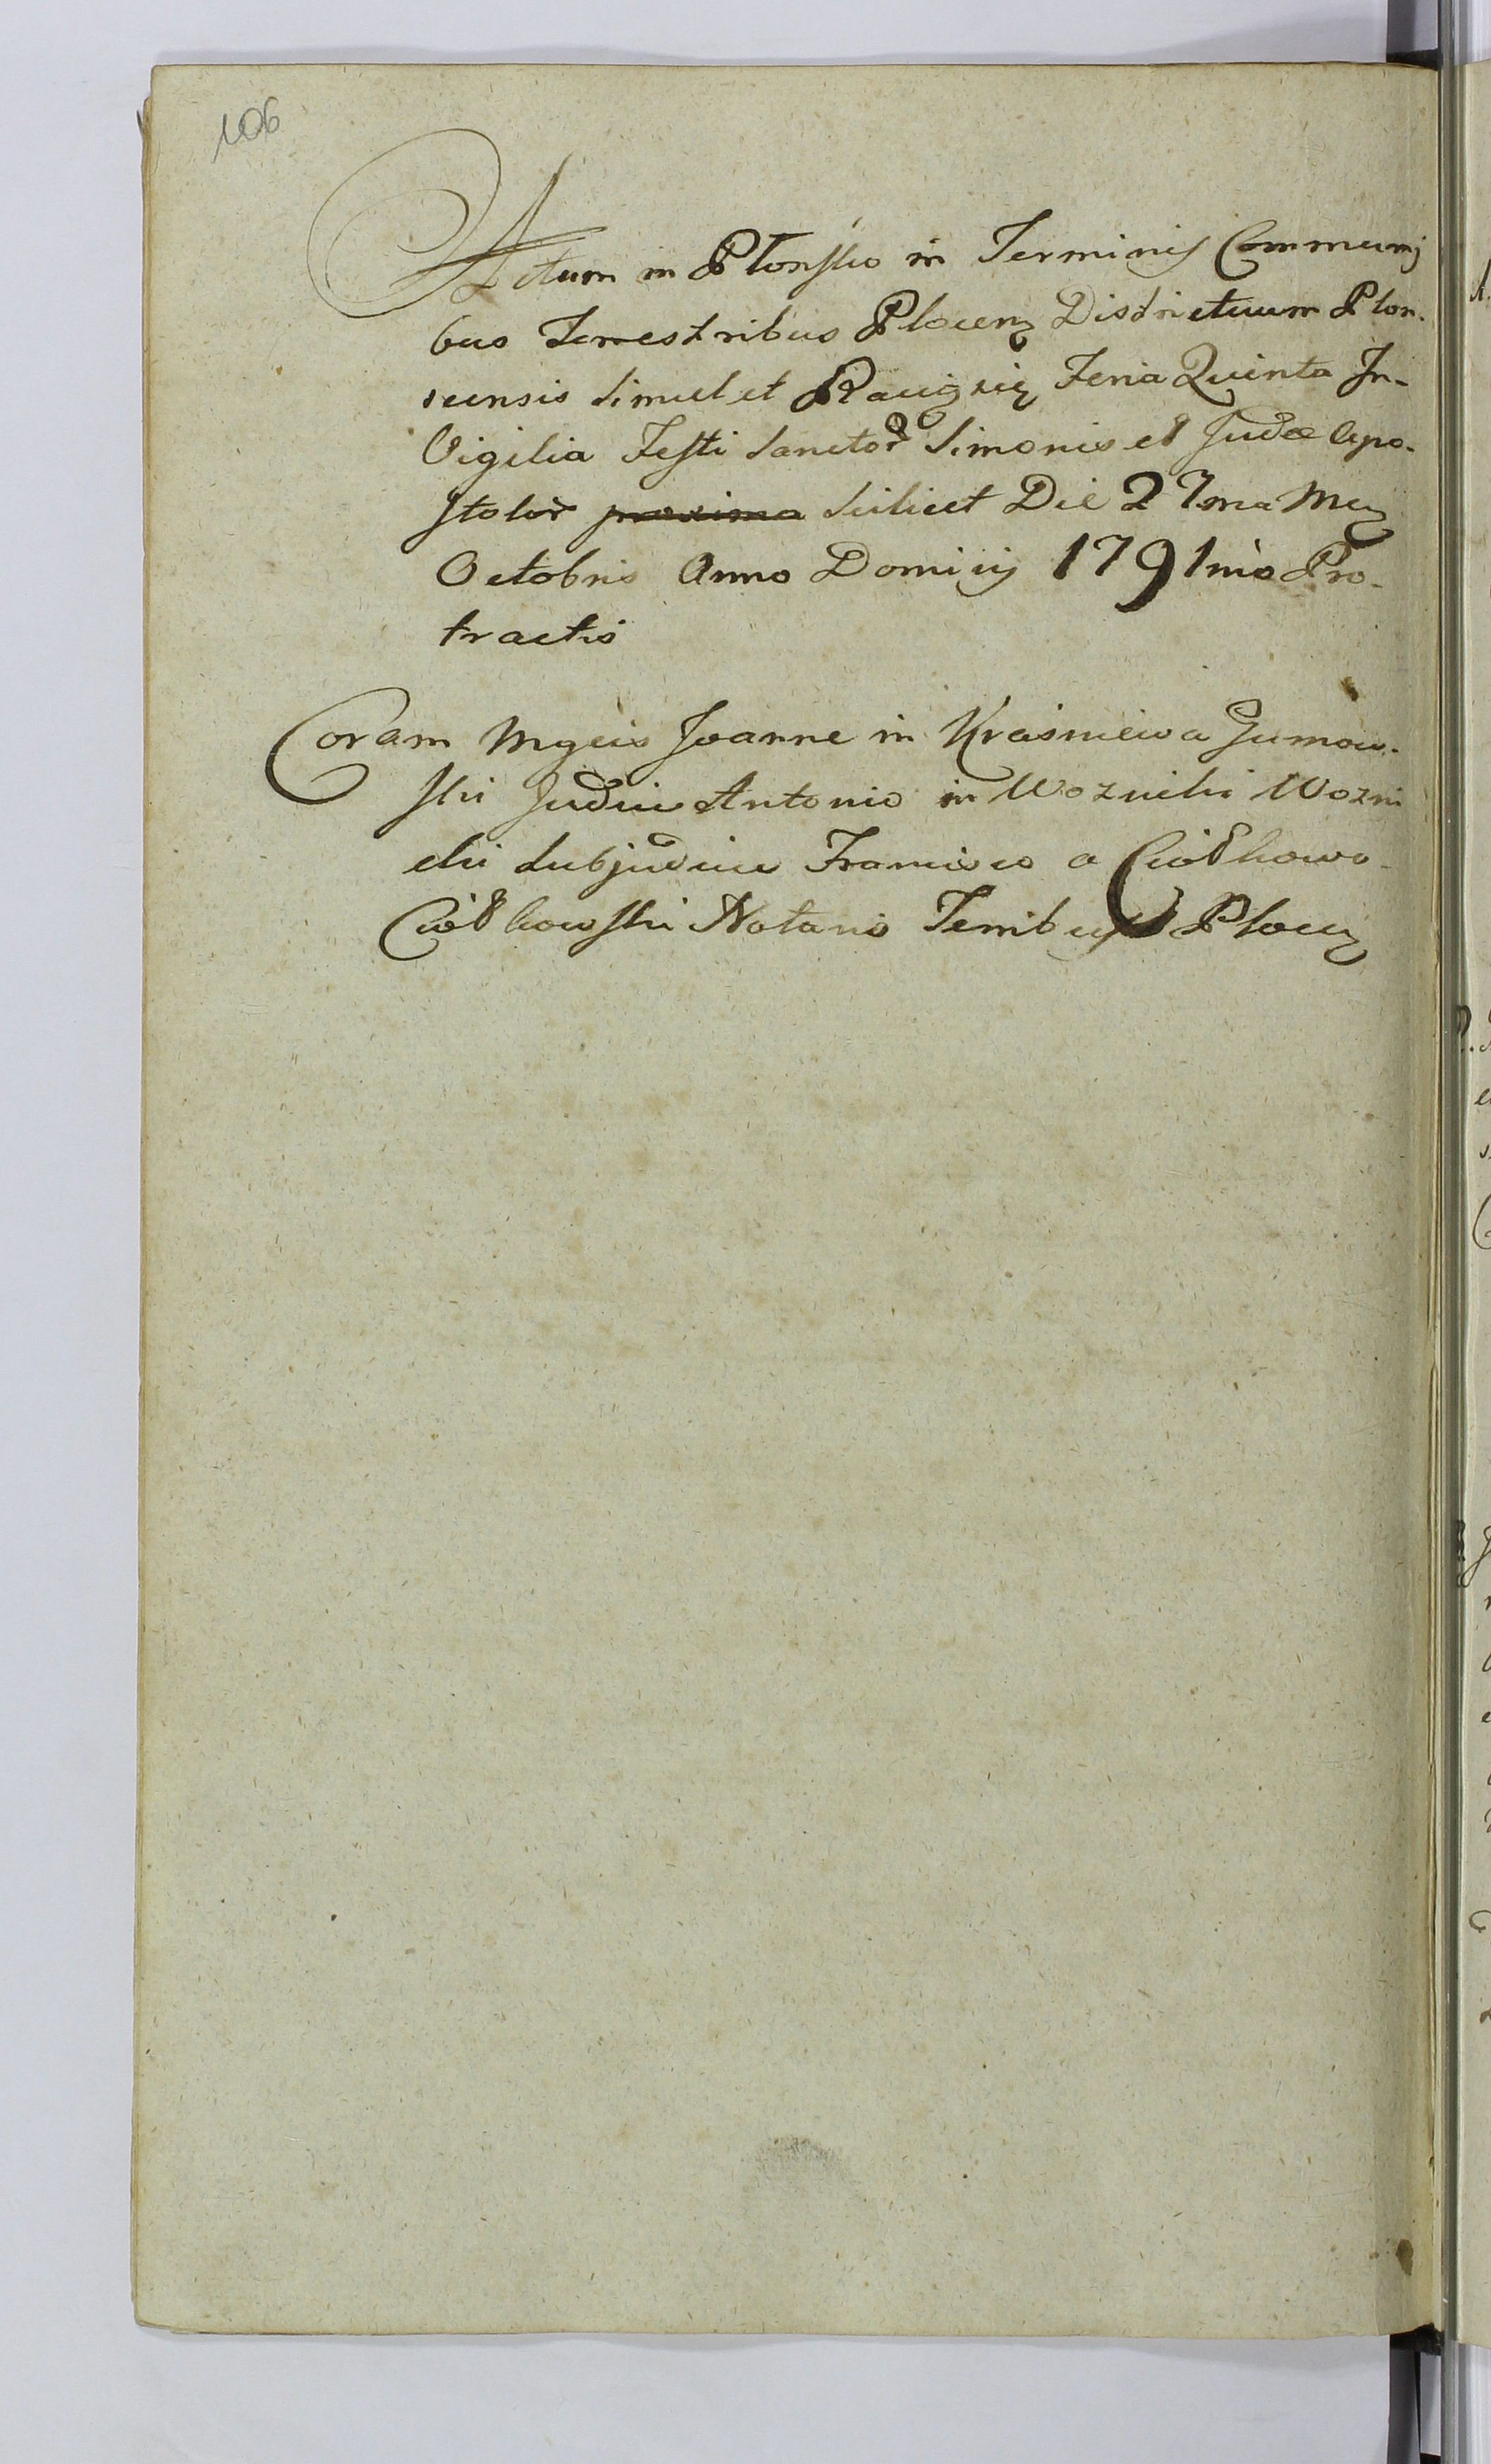 106
Actum in Płonsko in Terminis Communi
bus Terrestribus Plocen Districtuum Plon-
scensis Simul et Raciąscię Feria Quinta In-
Vigilia Festi Sanctor Simonis et Judæ Apo-
stolor proxima Scilicet Die 27ma Men
Octobris Anno Dominij 1791mo Pro-
tractis
Coram Mgcis Joanne in Krasniewa Jumow-
ski Judice Antonio in Woznicki Wozni
cki Subjudice Francisco a Ciołkowo
Ciołkowski Notario Terribus Plocen